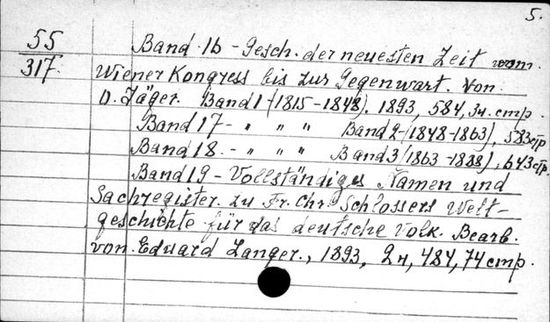 5.
55 Band 16 - Gesch. der neuesten Zeit vom
317. Wiener Kongress bis zur Gegenwart. Von
O. Jäger. Band 1 (1815-1848). 1893, 584, IV. стр.
Band 17 - " " " Band 2 (1848-1863), 583 стр.
Band 18. - " " " Band 3 (1863-1888), 643 стр.
Band 19 - Vollständiges Namen und
Sachregister zu Fr. Chr. Schlossers Welt-
geschichte für das deutsche Volk. Bearb.
von Eduard Langer., 1893, 2 н, 484, 74 стр.